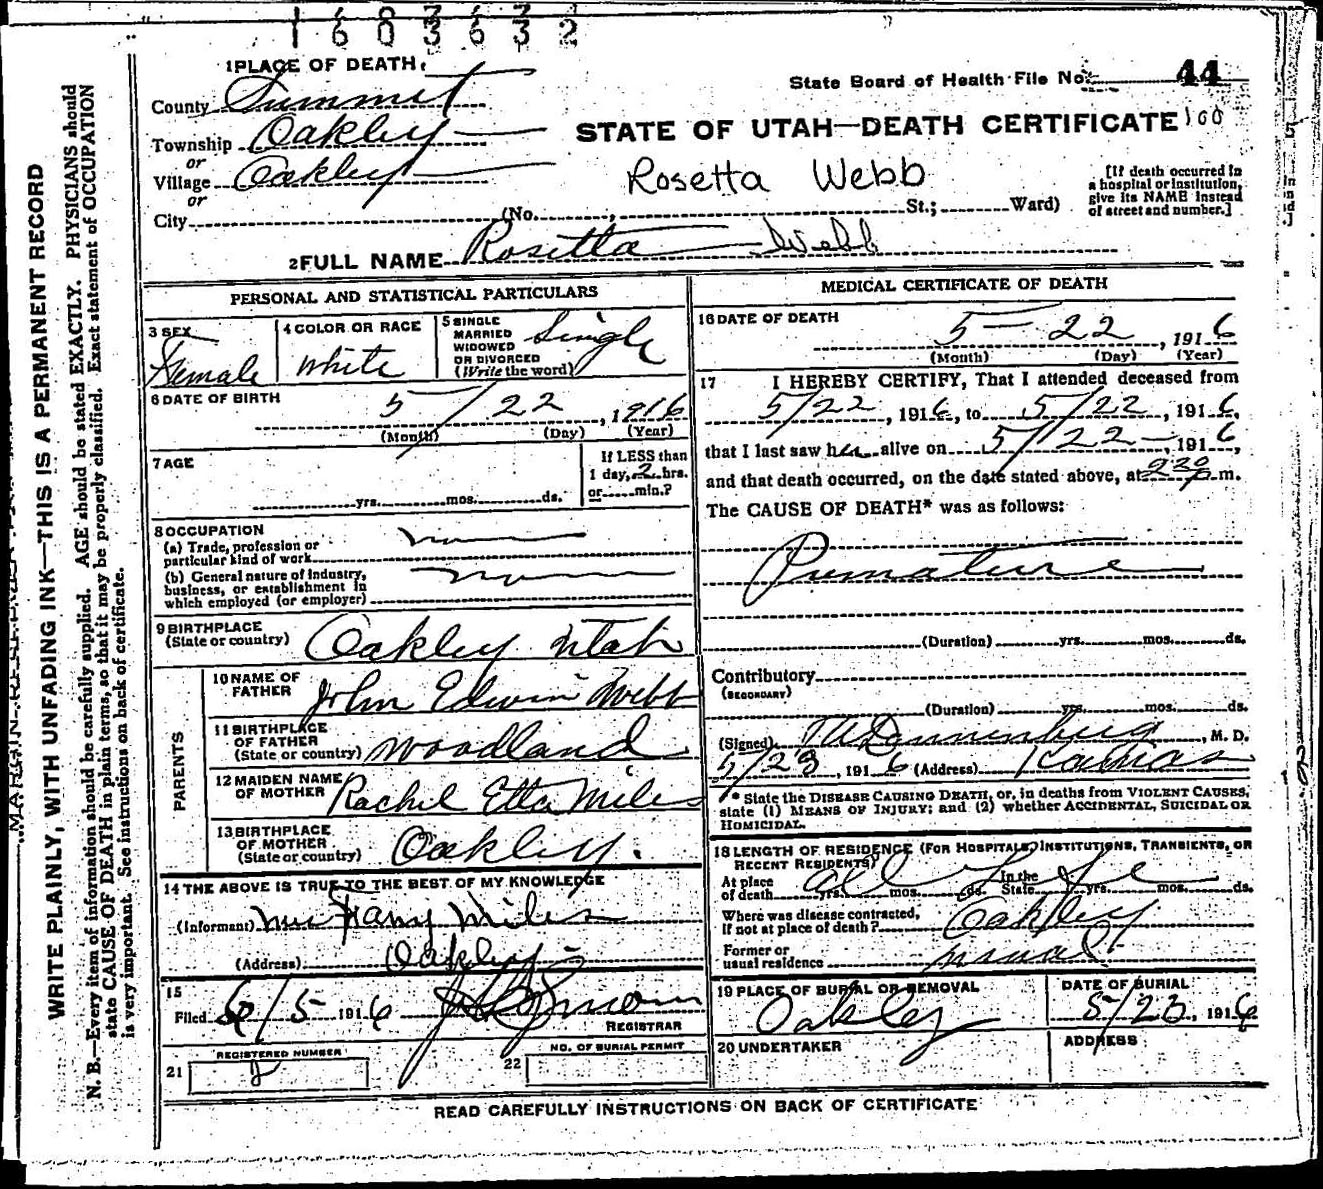 1 6 0 3 6 3 2
1 PLACE OF DEATH.
State Board of Health File No. 44
County Summit
Township Oakley
STATE OF UTAH—DEATH CERTIFICATE 100
or
Village Oakley
Rosetta Webb
[If death occurred in
a hospital or institution,
give its NAME instead
of street and number.]
or
City (No. , St.; Ward)
2 FULL NAME Rosetta Webb
PERSONAL AND STATISTICAL PARTICULARS
3 SEX
Female
4 COLOR OR RACE
White
5 SINGLE
MARRIED
WIDOWED
OR DIVORCED
(Write the word)
Single
6 DATE OF BIRTH
5 / 22, 1916
(Month) (Day) (Year)
7 AGE
yrs. mos. ds.
If LESS than
1 day, 2 hrs.
or min.?
8 OCCUPATION
(a) Trade, profession or
particular kind of work
(b) General nature of industry,
business, or establishment in
which employed (or employer)
9 BIRTHPLACE
(State or country) Oakley Utah
PARENTS
10 NAME OF
FATHER John Edwin Webb
11 BIRTHPLACE
OF FATHER
(State or country) Woodland
12 MAIDEN NAME
OF MOTHER Rachel Etta Miles
13 BIRTHPLACE
OF MOTHER
(State or country) Oakley.
14 THE ABOVE IS TRUE TO THE BEST OF MY KNOWLEDGE
(Informant) Miles
(Address) Oakley
15
Filed 6/5 1916
REGISTRAR
REGISTERED NUMBER
21
NO. OF BURIAL PERMIT
22
MEDICAL CERTIFICATE OF DEATH
16 DATE OF DEATH
5 - 22, 1916
(Month) (Day) (Year)
17 I HEREBY CERTIFY, That I attended deceased from
5/22, 1916, to 5/22, 1916,
that I last saw her alive on 5/22 - 1916,
and that death occurred, on the date stated above, at 2 30 P m.
The CAUSE OF DEATH* was as follows:
Premature
(Duration) yrs. mos. ds.
Contributory
(SECONDARY)
(Duration) yrs. mos. ds.
(Signed) , M. D.
5/23, 1916 (Address) Kamas
* State the DISEASE CAUSING DEATH, or, in deaths from VIOLENT CAUSES,
state (1) MEANS OF INJURY; and (2) whether ACCIDENTAL, SUICIDAL OR
HOMICIDAL.
18 LENGTH OF RESIDENCE (FOR HOSPITALS, INSTITUTIONS, TRANSIENTS, OR
RECENT RESIDENTS)
At place
of death all yrs. mos. ds. In the State yrs. mos. ds.
Where was disease contracted,
if not at place of death? Oakley
Former or
usual residence usual
19 PLACE OF BURIAL OR REMOVAL
Oakley
DATE OF BURIAL
5/23, 1916
20 UNDERTAKER
ADDRESS
READ CAREFULLY INSTRUCTIONS ON BACK OF CERTIFICATE
WRITE PLAINLY, WITH UNFADING INK—THIS IS A PERMANENT RECORD
N. B.—Every item of information should be carefully supplied. AGE should be stated EXACTLY. PHYSICIANS should
state CAUSE OF DEATH in plain terms, so that it may be properly classified. Exact statement of OCCUPATION
is very important. See instructions on back of certificate.